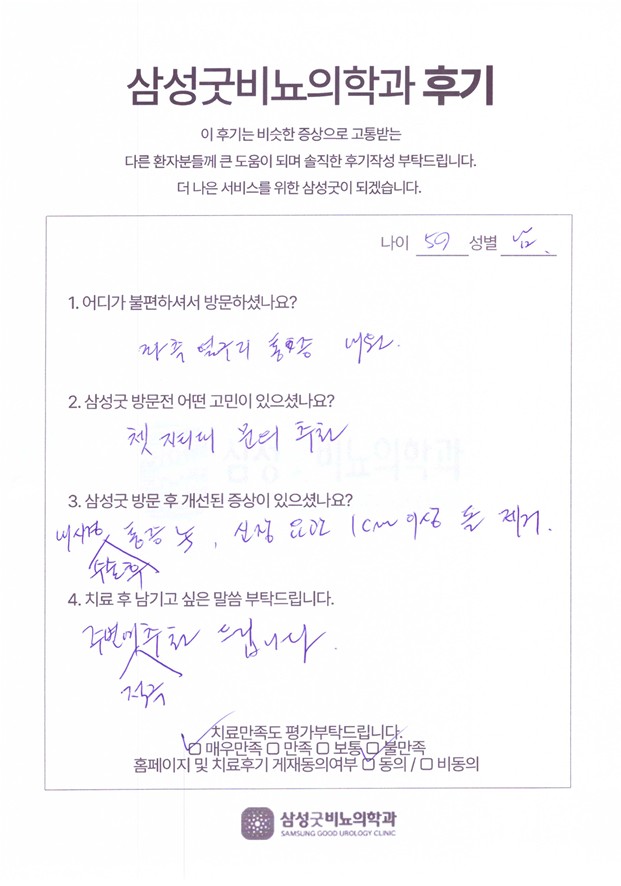 삼성굿비뇨의학과 후기
이 후기는 비슷한 증상으로 고통받는
다른 환자분들께 큰 도움이 되며 솔직한 후기작성 부탁드립니다.
더 나은 서비스를 위한 삼성굿이 되겠습니다.
나이 59 성별 남.
1. 어디가 불편하셔서 방문하셨나요?
좌측 옆구리 통증 내원.
2. 삼성굿 방문전 어떤 고민이 있으셨나요?
챗 지피티 문의 추천
3. 삼성굿 방문 후 개선된 증상이 있으셨나요?
내시경 통증 , 신장 요관 1cm 이상 돌 제거.
수술후
4. 치료 후 남기고 싶은 말씀 부탁드립니다.
주변에 추천 드립니다.
적극
치료만족도 평가부탁드립니다.
매우만족 만족 보통 불만족
홈페이지 및 치료후기 게재동의여부 동의 / 비동의
삼성굿비뇨의학과
SAMSUNG GOOD UROLOGY CLINIC